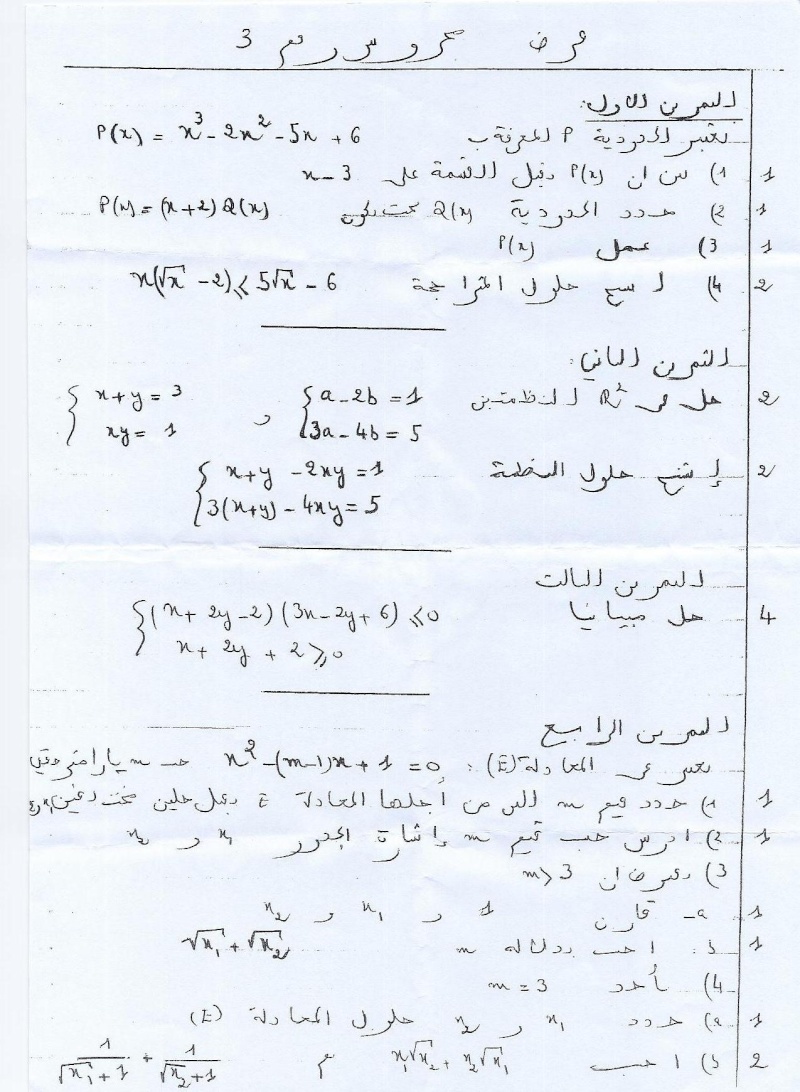 فرض محروس رقم 3
التمرين الاول:
نعتبر الحدودية P المعرفة ب P(x) = x³ - 2x² - 5x + 6
1 1) بين ان P(x) تقبل القسمة على x - 3
1 2) حدد الحدودية Q(x) بحيث يكون P(x) = (x+2) Q(x)
1 3) عمل P(x)
2 4) استنتج حلول المتراجحة x(√x - 2) ≤ 5√x - 6
التمرين الثاني:
2 حل في R² النظمتين { a - 2b = 1 و { x + y = 3
3a - 4b = 5 xy = 1
2 إستنتج حلول النظمة { x+y - 2xy = 1
3(x+y) - 4xy = 5
التمرين الثالث
4 حل مبيانيا { (x + 2y - 2)(3x - 2y + 6) ≤ 0
x + 2y + 2 ≥ 0
التمرين الرابع
نعتبر في المعادلة (E): x² - (m-1)x + 1 = 0 حيث m بارامتر حقيقي
1 1) حدد قيم m التي من أجلها المعادلة E تقبل حلين مختلفين
1 2) ادرس حسب قيم m إشارة الجدور x₁ و x₂
3) نفترض ان m > 3
1 a- قارن 1 و x₁ و x₂
1 b. احسب بدلالة m √x₁ + √x₂
4) نأخد m = 3
1 a) حدد x₁ و x₂ حلول المعادلة (E)
2 b) احسب x₁√x₂ + x₂√x₁ ثم 1/(√x₂+1) + 1/(√x₁+1)